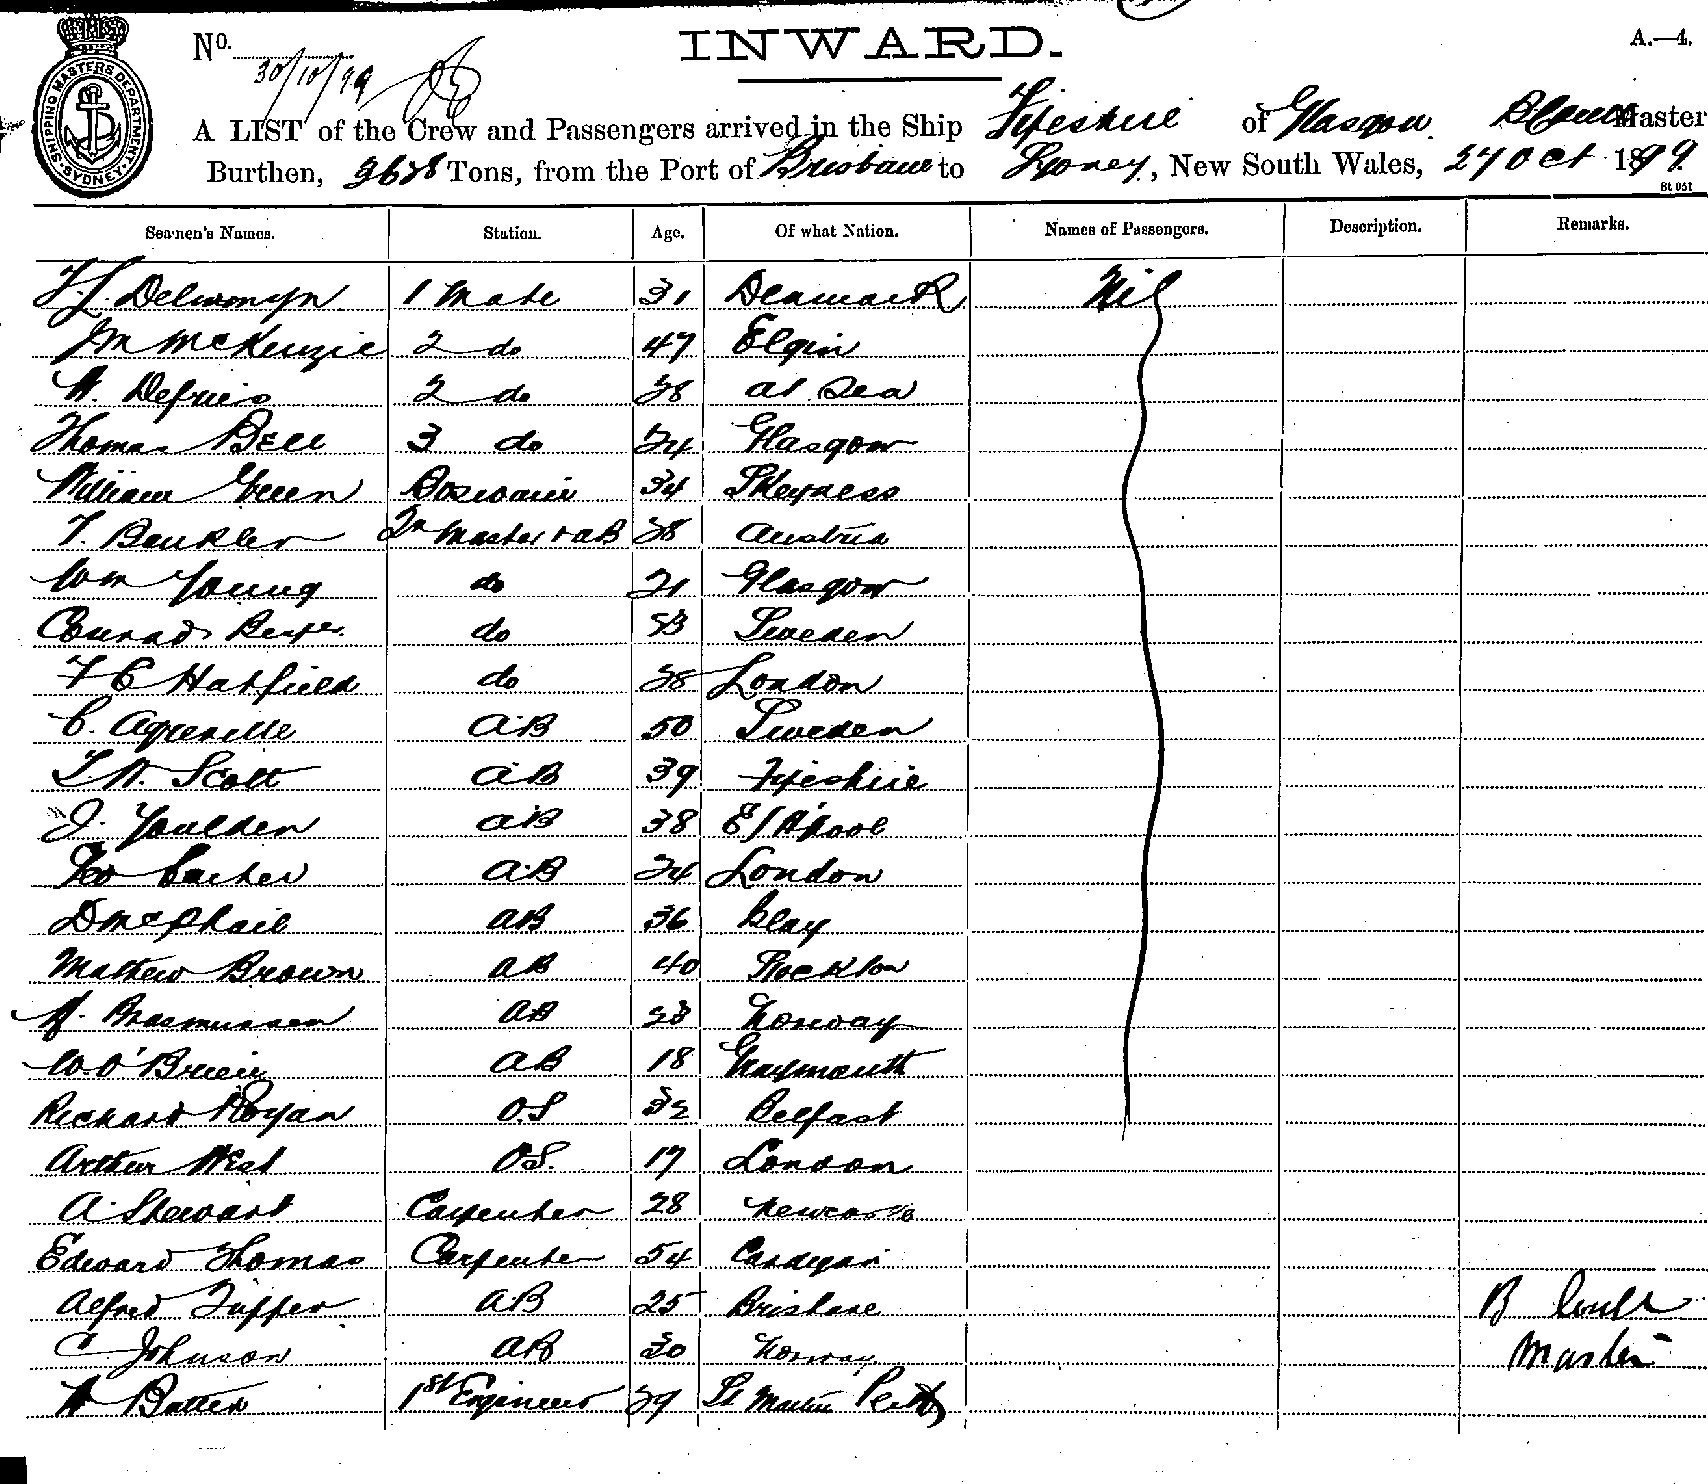 SHIPPING MASTERS DEPARTMENT SYDNEY
No. 30/10/99
INWARD.
A.—4.
A LIST of the Crew and Passengers arrived in the Ship Fifeshire of Glasgow Master
Burthen, 3678 Tons, from the Port of Brisbane to Sydney, New South Wales, 27 Oct 1899.
Bt 051
Seamen's Names. Station. Age. Of what Nation. Names of Passengers. Description. Remarks.
1 Mate 31 Denmark Nil
Jn McKenzie 2 do 47 Elgin
W. Defries 2 do 28 at Sea
Thomas Bell 3 do 24 Glasgow
William Green Boswain 34 Skegness
Master & AB 28 Austria
Wm Young do 21 Glasgow
Conrad do Sweden
F C Hatfield do 38 London
C. AB 50 Sweden
T W. Scott AB 39 Fifeshire
J. Youlden AB 38
AB 24 London
D McPhail AB 36 Islay
Mathew Brown AB 40 Stockton
Rasmussen AB 28 Norway
W. O'Brien AB 18 Graymouth
Richard Royan O.S 32 Belfast
Arthur West O.S. 17 London
A. Stewart Carpenter 28 Newcastle
Edward Thomas Carpenter 54 Cardigan
Alfred Tupper AB 25 Brisbane
C Johnson AB 30 Norway Master
W Batten 1st Engineer 29 St Martin Perth